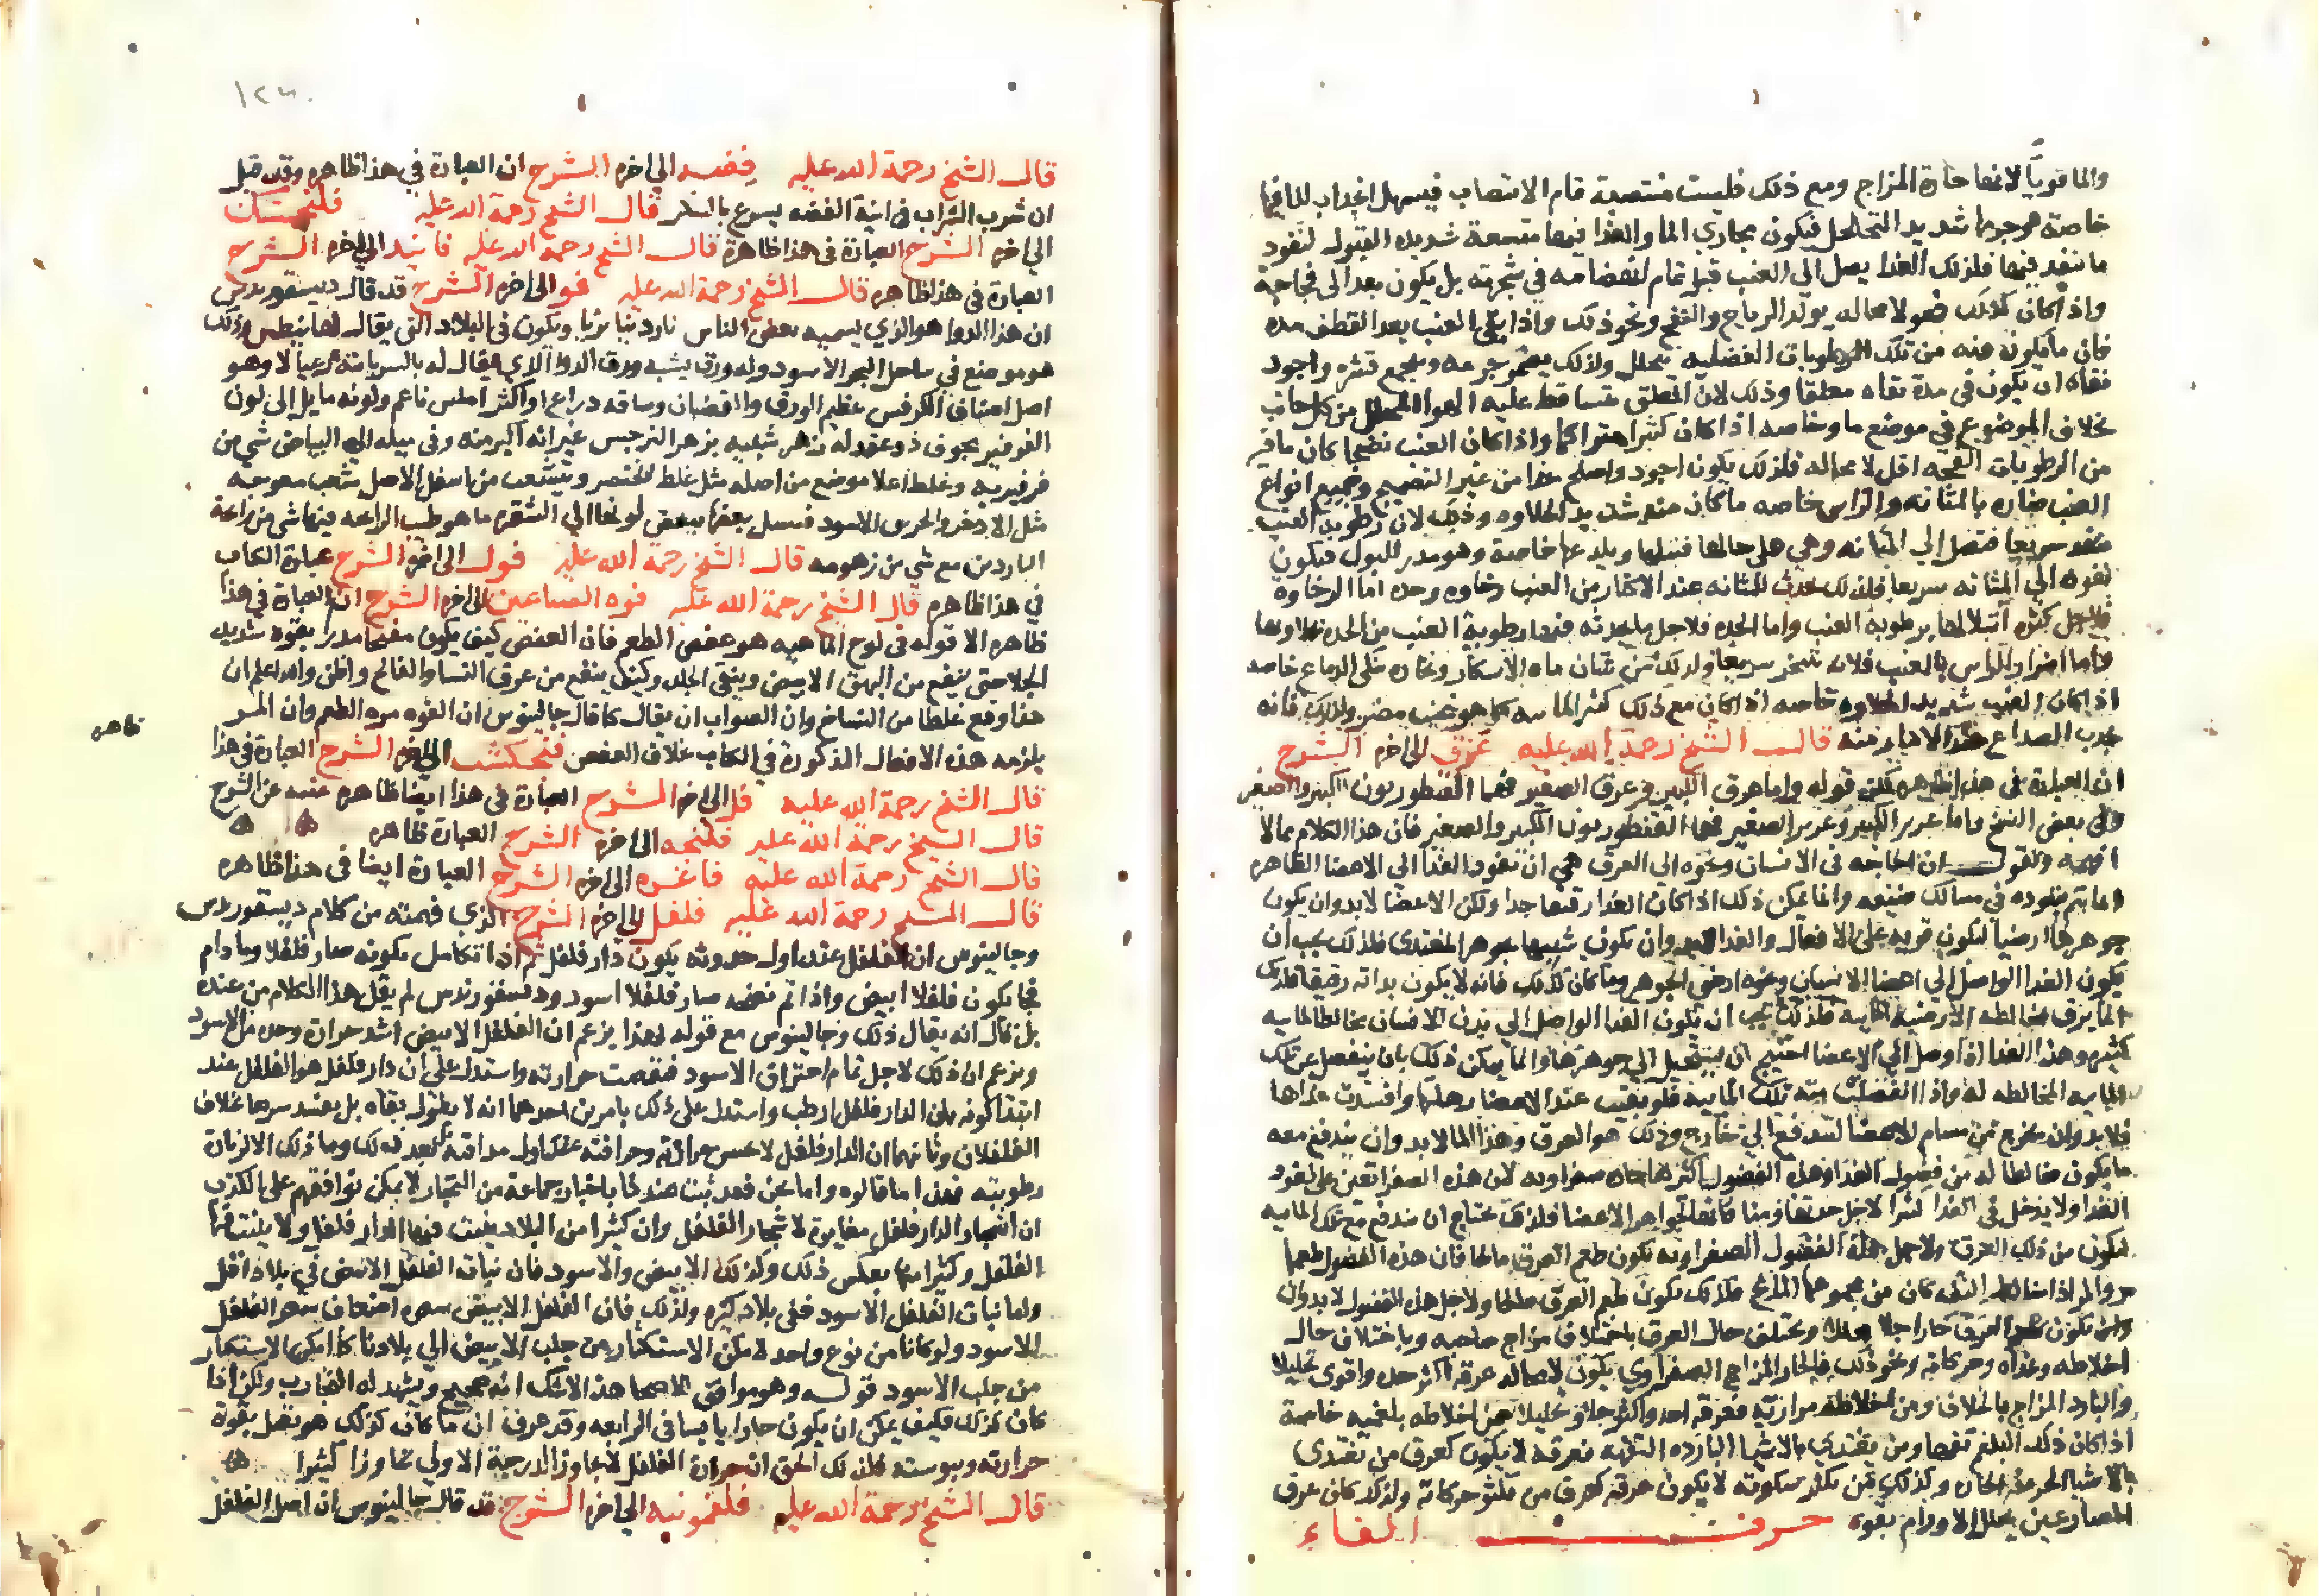 والما قويا لانها حارة المزاج ومع ذلك فليست منتصبة قام الانتصاب فيسهل انجذاب للما فيها
خاصة هو جرمها شديد التخلخل فيكون مجاري الما والغذا فيها متسعة شديده القبول لنفود
ما ينفد فيها فلذلك الغذا يصل الى العنب قبل تمام انهضامه في شجرته بل يكون بعد الى فجاجة
واذا كان كذلك فهو لا محاله يولد الرياح والنفخ ونحو ذلك واذا بقي العنب بعد القطف مده
فان ما يكون فيه من تلك الرطوبات الفضلية يتحلل ولذلك يضمر جرمه ويجمع قشره واجود
بقاه ان يكون في مدة بقاه معلقا وذلك لان المعلق متساقط عليه الهوا المحلل من كل جانب
بخلاف الموضوع في موضع ما وخاصه اذا كان كثيرا متراكما واذا كان العنب نضيجا كان ما فيه
من الرطوبات الفجه اقل لا محاله فلذلك يكون اجود واصلح غذا من غير النضيج وجميع انواع
العنب ضاره بالمثانه والراس خاصه ما كان منه شديد الحلاوه وذلك لان رطوبة العنب
تنفد سريعا فتصل الى المثانه وهي على حالها فتبلها ويلدعها خاصة وهو مدر للبول فيكون
نفوده الى المثانه سريعا فلذلك يحدث للمثانه عند الاكثار من العنب رخاوه وحده اما الرخاوه
فلاجل كثره ابتلالها برطوبة العنب واما الحده فلاجل ما يحدثه فيها رطوبة العنب من الحده
واما اضراره للراس بالعنب فلانه يتبخر سريعا ولذلك من شان ماه الاسكار وبخاره على الدماغ خاصه
اذا كان العنب شديد الحلاوه خاصه اذا كان مع ذلك كثير المائيه كما هو عنب مصر ولذلك فانه
يجدب الصداع عند الاكثار منه قال الشيخ رحمة الله عليه عرق الى اخره الشرح
ان العبارة في هذا ظاهره لكن قوله واما عرق الكبير وعرق الصغير فهما القنطوريون الكبير والصغير
وفي بعض النسخ واما عرير الكبير وعرير الصغير فهما القنطوريون الكبير والصغير فان هذا الكلام مما لا
افهمه ونقول ان الحاجه في الانسان ونحوه الى العرق هي ان نفود الغذا الى الاعضا الظاهره
انما يتم بنفوده في مسالك ضيقه وانما يمكن ذلك اذا كان الغذا رقيقا جدا ولكن الاعضا لا بد وان يكون
جوهرها ارضيا لتكون قويه على الافعال والغذا لا بد وان يكون شبيها بجوهر المغتدى فلذلك يجب ان
يكون الغذا الواصل الى اعضا الانسان ونحوه ارضي الجوهر وما كان كذلك فانه لا يكون بداته رقيقا فلذلك
انما يرق بمخالطه الارضية المائيه فلذلك يجب ان تكون الغذا الواصل الى بدن الانسان مخالطا لمائيه
كثيره وهذا الغذا اذا وصل الى الاعضا احتيج ان يستحيل الى جوهرها وانما يمكن ذلك بان ينفصل عن تلك
المائيه المخالطه له واذا انفصلت منه تلك المائية فلو بقيت عند الاعضا رهلتها وافسدت غذاها
فلا بد وان يخرج من مسام الاعضا لتندفع الى خارج وذلك هو العرق وهذا الما لا بد وان يندفع معه
ما يكون مخالطا له من فضول الغذا وهذه الفضول اكثرها حاده صفراويه لان هذه الصفرا تعين على نفود
الغذا ولا يدخل في الغذا كثيرا لاجل حدتها ومنافاتها لجواهر الاعضا فلذلك تحتاج ان تندفع مع تلك المائيه
فيكون من ذلك العرق ولاجل هذه الفضول الصفراويه تكون طعم العرق مالحا فان هذه الفضول طعمها
مر والمر اذا خالط التفه كان من مجموعهما المالح فلذلك يكون طعم العرق مالحا ولاجل هذه الفضول لا بد وان
يكون العرق حارا جلا محللا ويختلف حال العرق باختلاف مزاج صاحبه وباختلاف حال
اخلاطه وغذاه وحركاته ونحو ذلك فالحار المزاج الصفراوي يكون لا محاله عرقه اكثر حده واقوى تحليلا
والبارد المزاج بالخلاف ومن اخلاطه مراريه فعرقه احد واكثر جلا وتحليلا ممن اخلاطه بلغميه خاصة
اذا كان ذلك البلغم تفها ومن يغتدي بالاشيا البارده التفهه فعرقه لا يكون كعرق من يغتدى
بالاشيا الحريفه الحاره وكذلك من تكثر سكونه لا يكون عرقه كعرق من تكثر حركاته ولذلك كان عرق
المصارعين يحلل الاورام بقوه حرف الفاء
١٢٣٠
قال الشيخ رحمة الله عليه فضه الى اخره الشرح ان العبارة في هذا ظاهره وقد قيل
ان شرب الشراب في انية الفضه يسرع بالسكر قال الشيخ رحمة الله عليه فلنجمشك
الى اخره الشرح العبارة في هذا ظاهرة قال الشيخ رحمة الله عليه فانيد الى اخره الشرح
العبارة في هذا ظاهره قال الشيخ رحمة الله عليه فو الى اخره الشرح قد قال ديسقوريدس
ان هذا الدوا هو الذي يسميه بعض الناس ناردينا بريا ويكون في البلاد التي يقال لها بنطس وذلك
هو موضع في ساحل البحر الاسود وله ورق يشبه ورق الدوا الذي يقال له بالسريانية رعيالا وهو
اصل اصناف الكرفس عظيم الورق والقضبان وساقه دراع او اكثر املس ناعم ولونه مايل الى لون
الفرفير مجوف ذو عقد له زهر شبيه بزهر النرجس غير انه اكبر منه وفي ميله الى البياض شي من
فرفيريه وغلظ اعلا موضع من اصله مثل غلظ الخنصر ويتشعب من اسفل الاصل شعب معوجه
مثل الاذخر والخربق الاسود بعضها ببعض لونها الى الشقره ما هو طيب الرائحه فيها شي من رائحة
الناردين مع شي من زهومه قال الشيخ رحمة الله عليه فول الى اخره الشرح عبارة الكتاب
في هذا ظاهره قال الشيخ رحمة الله عليه فوه الصباغين الى اخره الشرح ان العبارة في هذا
ظاهره الا قوله في لوح الماهيه هو عفص الطعم فان العفص كيف يكون مفتحا مدرا بقوه شديد
الجلا حتى ينفع من البهق الابيض وينقي الجلد وكيف ينفع من عرق النسا والفالج واظن والله اعلم ان
هذا وقع غلطا من النساخ وان الصواب ان يقال كما قال جالينوس ان الفوه مره الطعم وان المر
يلزمه هذه الافعال المذكورة في الكتاب بخلاف العفص فنجنكشت الى اخره الشرح العبارة في هذا
ظاهره
قال الشيخ رحمة الله عليه فل الى اخره الشرح العبارة في هذا ايضا ظاهره غنيه عن الشرح
قال الشيخ رحمة الله عليه فلنجه الى اخره الشرح العبارة ظاهره
قال الشيخ رحمة الله عليه فاغره الى اخره الشرح العبارة ايضا في هذا ظاهره
قال الشيخ رحمة الله عليه فلفل الى اخره الشرح الذي فهمته من كلام ديسقوريدس
وجالينوس ان الفلفل عند اول حدوثه يكون دار فلفل ثم اذا تكامل تكونه صار فلفلا وما دام
فجا يكون فلفلا ابيض واذا تم نضجه صار فلفلا اسود وديسقوريدس لم يقل هذا الكلام من عنده
بل قال انه يقال ذلك وجالينوس مع قوله بهذا يزعم ان الفلفل الابيض اشد حرارة وحده من الاسود
ويزعم ان ذلك لاجل تمام احتراق الاسود فنقصت حرارته واستدل على ان دار فلفل هو الفلفل عند
ابتدا كونه بان الدار فلفل ارطب واستدل على ذلك بامرين احدهما انه لا يطول بقاه بل يفسد سريعا بخلاف
الفلفلان وثانيهما ان الدار فلفل لا تحس حرارته وحرافته عند اول مداقته بل بعد ذلك وما ذلك الا لزيادة
رطوبته فهذا ما قالوه واما نحن فقد ثبت عندنا باخبار جماعة من التجار لا يمكن توافقهم على الكذب
ان اشجار الدار فلفل مغايرة لاشجار الفلفل وان كثيرا من البلاد ينبت فيها الدار فلفل ولا ينبت فيها
الفلفل وكثيرا منها بعكس ذلك وكذلك الابيض والاسود فان نبات الفلفل الابيض في بلاد اقل
واما نبات الفلفل الاسود ففي بلاد كثيره ولذلك فان الفلفل الابيض سعره اضعاف سعر الفلفل
الاسود ولو كانا من نوع واحد لامكن الاستكثار من جلب الابيض الى بلادنا كما امكن الاستكثار
من جلب الاسود قوله وهو موافق للاصحا هذا لا شك انه صحيح ويشهد له التجارب ولكن اذا
كان كذلك فكيف يمكن ان يكون حارا يابسا في الرابعه وقد عرف ان ما كان كذلك هو يقتل بقوة
حرارته ويبوسته فلذلك الحق ان حرارة الفلفل لا تجاوز الدرجة الاولى تجاوزا كثيرا
قال الشيخ رحمة الله عليه فلفمونيه الى اخره الشرح قد قال جالينوس ان اصل الفلفل